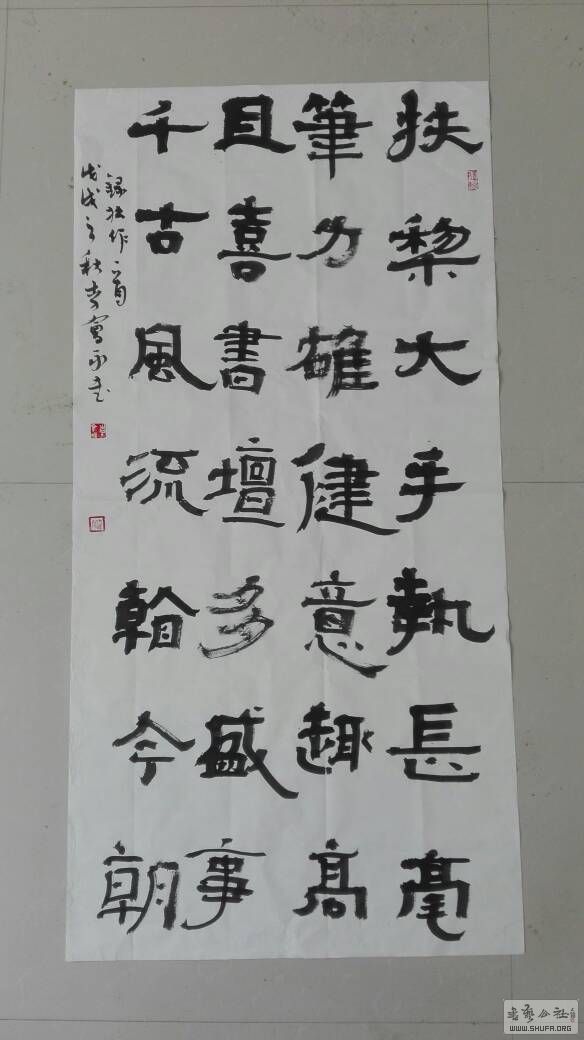 扶犂大手執長毫
筆力雄健意趣高
且喜書壇多盛事
千古風流今朝
録拙作一首
戊戌之秋
書藝公社
WWW.SHUFA.ORG